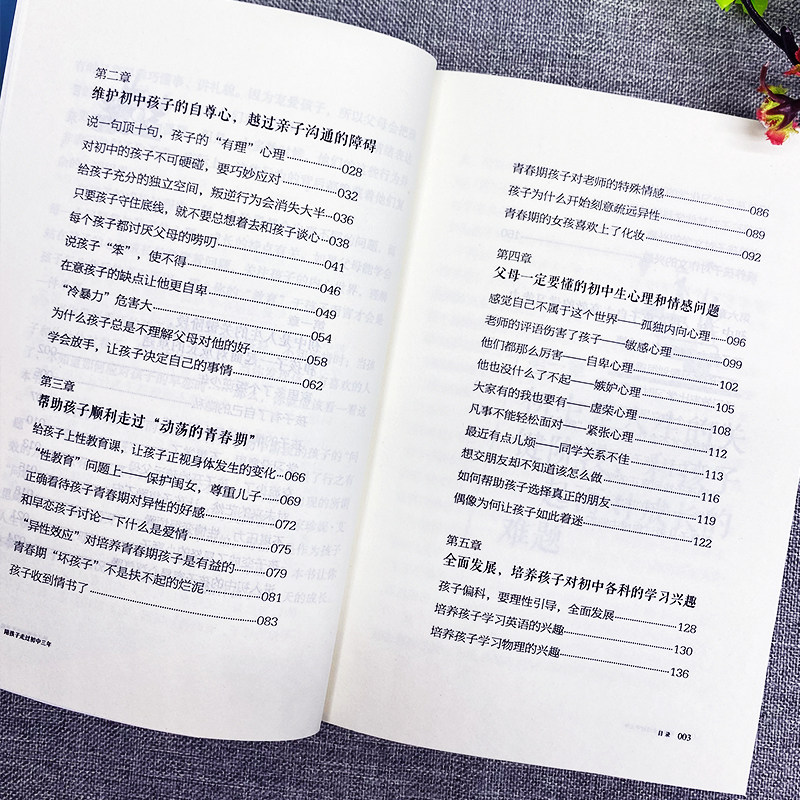 第二章
维护初中孩子的自尊心，越过亲子沟通的障碍
说一句顶十句，孩子的“有理”心理……028
对初中的孩子不可硬碰，要巧妙应对……032
给孩子充分的独立空间，叛逆行为会消失大半…036
只要孩子守住底线，就不要总想着去和孩子谈心…038
每个孩子都讨厌父母的唠叨……041
说孩子“笨”，使不得……046
在意孩子的缺点让他更自卑……049
“冷暴力”危害大……054
为什么孩子总是不理解父母对他的好……058
学会放手，让孩子决定自己的事情……062
第三章
帮助孩子顺利走过“动荡的青春期”
给孩子上性教育课，让孩子正视身体发生的变化…066
“性教育”问题上——保护闺女，尊重儿子……069
正确看待孩子青春期对异性的好感……072
和早恋孩子讨论一下什么是爱情……075
“异性效应”对培养青春期孩子是有益的……079
青春期“坏孩子”不是扶不起的烂泥……081
孩子收到情书了……083
陪孩子走过初中三年
青春期孩子对老师的特殊情感……086
孩子为什么开始刻意疏远异性……089
青春期的女孩喜欢上了化妆……092
第四章
父母一定要懂的初中生心理和情感问题
感觉自己不属于这个世界——孤独内向心理…096
老师的评语伤害了孩子——敏感心理……099
他们都那么厉害——自卑心理……102
他也没什么了不起——嫉妒心理……105
大家有的我也要有——虚荣心理……108
凡事不能轻松面对——紧张心理……112
最近有点儿烦——同学关系不佳……113
想交朋友却不知道该怎么做……116
如何帮助孩子选择真正的朋友……119
偶像为何让孩子如此着迷……122
第五章
全面发展，培养孩子对初中各科的学习兴趣
孩子偏科，要理性引导，全面发展……128
培养孩子学习英语的兴趣……130
培养孩子学习物理的兴趣……136
目录 003